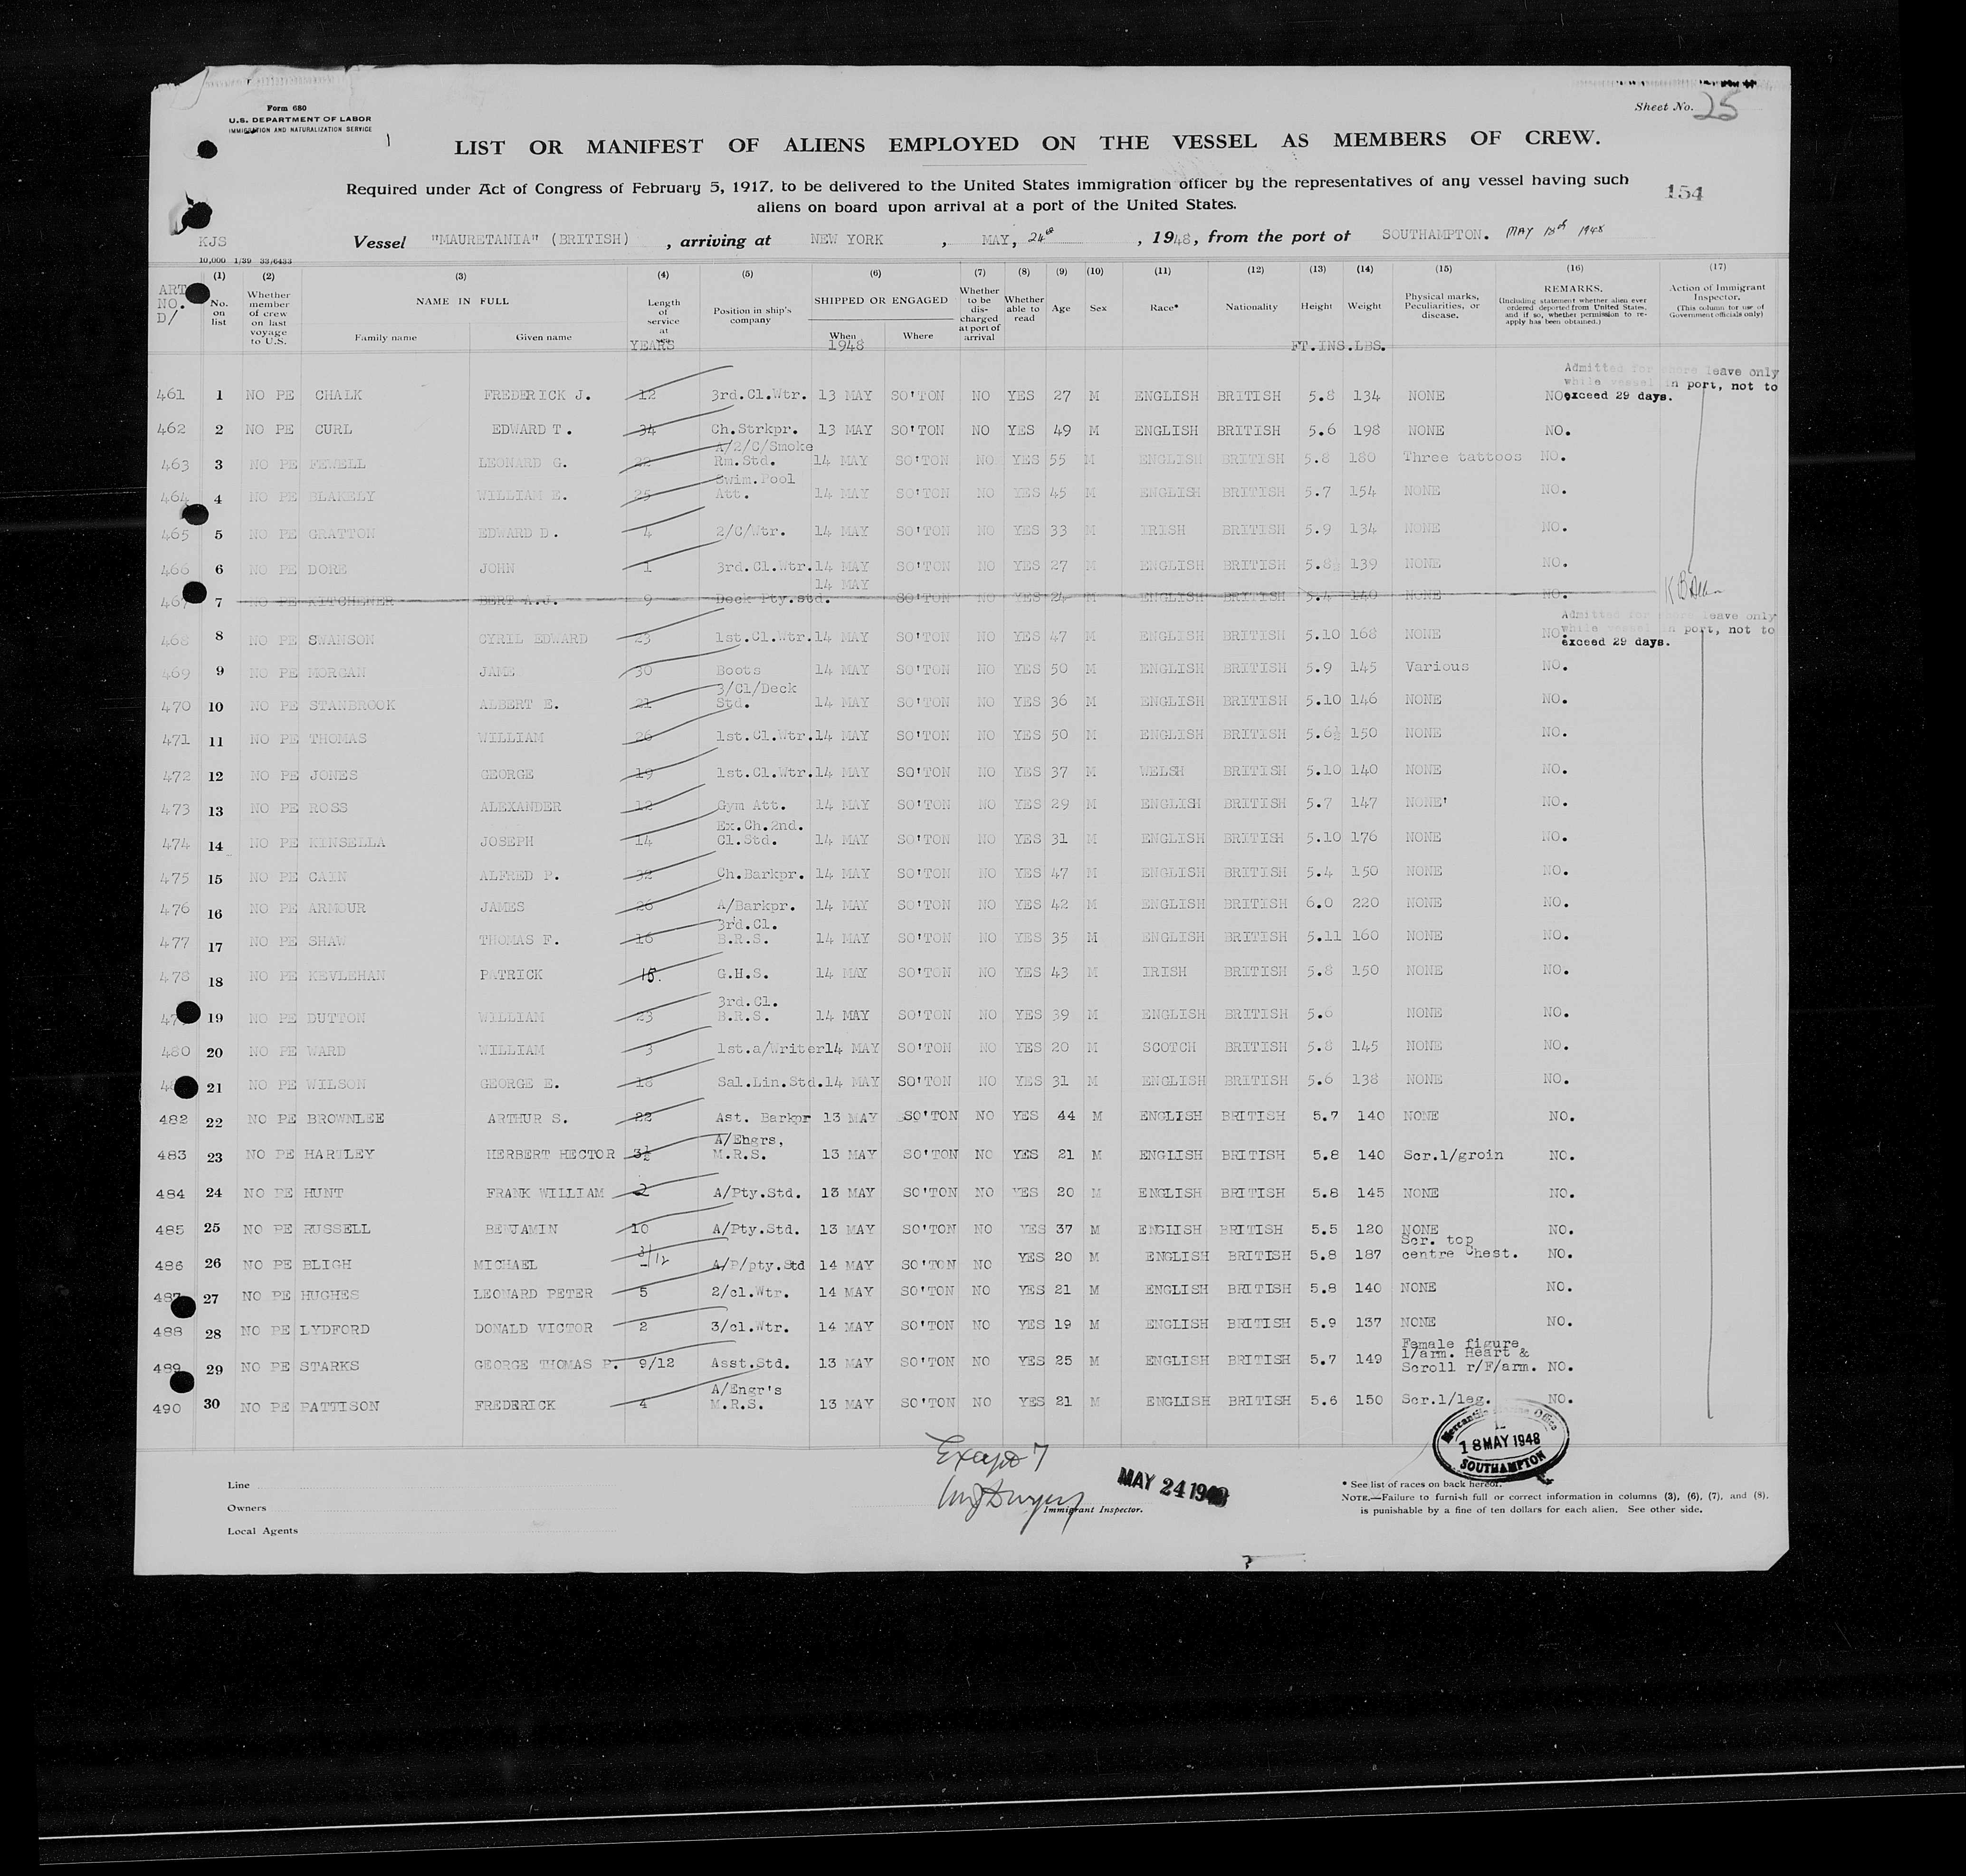 Form 680
U.S. DEPARTMENT OF LABOR
IMMIGRATION AND NATURALIZATION SERVICE
Sheet No. 25
LIST OR MANIFEST OF ALIENS EMPLOYED ON THE VESSEL AS MEMBERS OF CREW.
Required under Act of Congress of February 5, 1917, to be delivered to the United States immigration officer by the representatives of any vessel having such
aliens on board upon arrival at a port of the United States.
154
KJS
Vessel "MAURETANIA" (BRITISH) , arriving at NEW YORK , MAY, 24th , 1948, from the port of SOUTHAMPTON. MAY 18th 1948
10,000 1/39 33/6433
ART NO. D/
(1) No. on list
(2) Whether member of crew on last voyage to U.S.
(3) NAME IN FULL
Family name Given name
(4) Length of service at sea YEARS
(5) Position in ship's company
(6) SHIPPED OR ENGAGED
When 1948 Where
(7) Whether to be discharged at port of arrival
(8) Whether able to read
(9) Age
(10) Sex
(11) Race*
(12) Nationality
(13) Height
(14) Weight
FT.INS.LBS.
(15) Physical marks, Peculiarities, or disease.
(16) REMARKS, (Including statement whether alien ever ordered deported from United States, and if so, whether permission to re-apply has been obtained.)
(17) Action of Immigrant Inspector. (This column for use of Government officials only)
Admitted for shore leave only
while vessel in port, not to
exceed 29 days.
461 1 NO PE CHALK FREDERICK J. 12 3rd.Cl.Wtr. 13 MAY SO'TON NO YES 27 M ENGLISH BRITISH 5.8 134 NONE NO
462 2 NO PE CURL EDWARD T. 34 Ch.Strkpr. 13 MAY SO'TON NO YES 49 M ENGLISH BRITISH 5.6 198 NONE NO.
463 3 NO PE FEWELL LEONARD G. 22 A/2/C/Smoke Rm.Std. 14 MAY SO'TON NO YES 55 M ENGLISH BRITISH 5.8 180 Three tattoos NO.
464 4 NO PE BLAKELY WILLIAM E. 25 Swim.Pool Att. 14 MAY SO'TON NO YES 45 M ENGLISH BRITISH 5.7 154 NONE NO.
465 5 NO PE GRATTON EDWARD D. 4 2/C/Wtr. 14 MAY SO'TON NO YES 33 M IRISH BRITISH 5.9 134 NONE NO.
466 6 NO PE DORE JOHN 1 3rd.Cl.Wtr. 14 MAY SO'TON NO YES 27 M ENGLISH BRITISH 5.8½ 139 NONE NO.
467 7 NO PE KITCHENER BERT A.J. 9 Deck Pty.std. 14 MAY SO'TON NO YES 24 M ENGLISH BRITISH 5.4 140 NONE NO.
Admitted for shore leave only
while vessel in port, not to
exceed 29 days.
468 8 NO PE SWANSON CYRIL EDWARD 23 1st.Cl.Wtr. 14 MAY SO'TON NO YES 47 M ENGLISH BRITISH 5.10 168 NONE NO.
469 9 NO PE MORGAN JAME 30 Boots 14 MAY SO'TON NO YES 50 M ENGLISH BRITISH 5.9 145 Various NO.
470 10 NO PE STANBROOK ALBERT E. 21 3/Cl/Deck Std. 14 MAY SO'TON NO YES 36 M ENGLISH BRITISH 5.10 146 NONE NO.
471 11 NO PE THOMAS WILLIAM 26 1st.Cl.Wtr. 14 MAY SO'TON NO YES 50 M ENGLISH BRITISH 5.6½ 150 NONE NO.
472 12 NO PE JONES GEORGE 19 1st.Cl.Wtr. 14 MAY SO'TON NO YES 37 M WELSH BRITISH 5.10 140 NONE NO.
473 13 NO PE ROSS ALEXANDER 12 Gym Att. 14 MAY SO'TON NO YES 29 M ENGLISH BRITISH 5.7 147 NONE' NO.
474 14 NO PE KINSELLA JOSEPH 14 Ex.Ch.2nd. Cl.Std. 14 MAY SO'TON NO YES 31 M ENGLISH BRITISH 5.10 176 NONE NO.
475 15 NO PE CAIN ALFRED P. 32 Ch.Barkpr. 14 MAY SO'TON NO YES 47 M ENGLISH BRITISH 5.4 150 NONE NO.
476 16 NO PE ARMOUR JAMES 26 A/Barkpr. 14 MAY SO'TON NO YES 42 M ENGLISH BRITISH 6.0 220 NONE NO.
477 17 NO PE SHAW THOMAS F. 16 3rd.Cl. B.R.S. 14 MAY SO'TON NO YES 35 M ENGLISH BRITISH 5.11 160 NONE NO.
478 18 NO PE KEVLEHAN PATRICK 15. G.H.S. 14 MAY SO'TON NO YES 43 M IRISH BRITISH 5.8 150 NONE NO.
47 19 NO PE DUTTON WILLIAM 23 3rd.Cl. B.R.S. 14 MAY SO'TON NO YES 39 M ENGLISH BRITISH 5.6 NONE NO.
480 20 NO PE WARD WILLIAM 3 1st.a/Writer 14 MAY SO'TON NO YES 20 M SCOTCH BRITISH 5.8 145 NONE NO.
4 21 NO PE WILSON GEORGE E. 18 Sal.Lin.Std. 14 MAY SO'TON NO YES 31 M ENGLISH BRITISH 5.6 138 NONE NO.
482 22 NO PE BROWNLEE ARTHUR S. 22 Ast. Barkpr 13 MAY SO'TON NO YES 44 M ENGLISH BRITISH 5.7 140 NONE NO.
483 23 NO PE HARTLEY HERBERT HECTOR 3½ A/Ehgrs, M.R.S. 13 MAY SO'TON NO YES 21 M ENGLISH BRITISH 5.8 140 Scr.l/groin NO.
484 24 NO PE HUNT FRANK WILLIAM 2 A/Pty.Std. 13 MAY SO'TON NO YES 20 M ENGLISH BRITISH 5.8 145 NONE NO.
485 25 NO PE RUSSELL BENJAMIN 10 A/Pty.Std. 13 MAY SO'TON NO YES 37 M ENGLISH BRITISH 5.5 120 NONE NO.
486 26 NO PE BLIGH MICHAEL 3/12 A/P/pty.Std 14 MAY SO'TON NO YES 20 M ENGLISH BRITISH 5.8 187 Scr. top centre Chest. NO.
487 27 NO PE HUGHES LEONARD PETER 5 2/cl.Wtr. 14 MAY SO'TON NO YES 21 M ENGLISH BRITISH 5.8 140 NONE NO.
488 28 NO PE LYDFORD DONALD VICTOR 2 3/cl.Wtr. 14 MAY SO'TON NO YES 19 M ENGLISH BRITISH 5.9 137 NONE NO.
489 29 NO PE STARKS GEORGE THOMAS P. 9/12 Asst.Std. 13 MAY SO'TON NO YES 25 M ENGLISH BRITISH 5.7 149 Female figure l/arm. Heart & Scroll r/F/arm. NO.
490 30 NO PE PATTISON FREDERICK 4 A/Engr's M.R.S. 13 MAY SO'TON NO YES 21 M ENGLISH BRITISH 5.6 150 Scr.l/leg. NO.
Mercantile Marine Office
18 MAY 1948
SOUTHAMPTON
Except 7
MAY 24 1948
Immigrant Inspector.
Line
Owners
Local Agents
* See list of races on back hereof.
NOTE.—Failure to furnish full or correct information in columns (3), (6), (7), and (8),
is punishable by a fine of ten dollars for each alien. See other side.